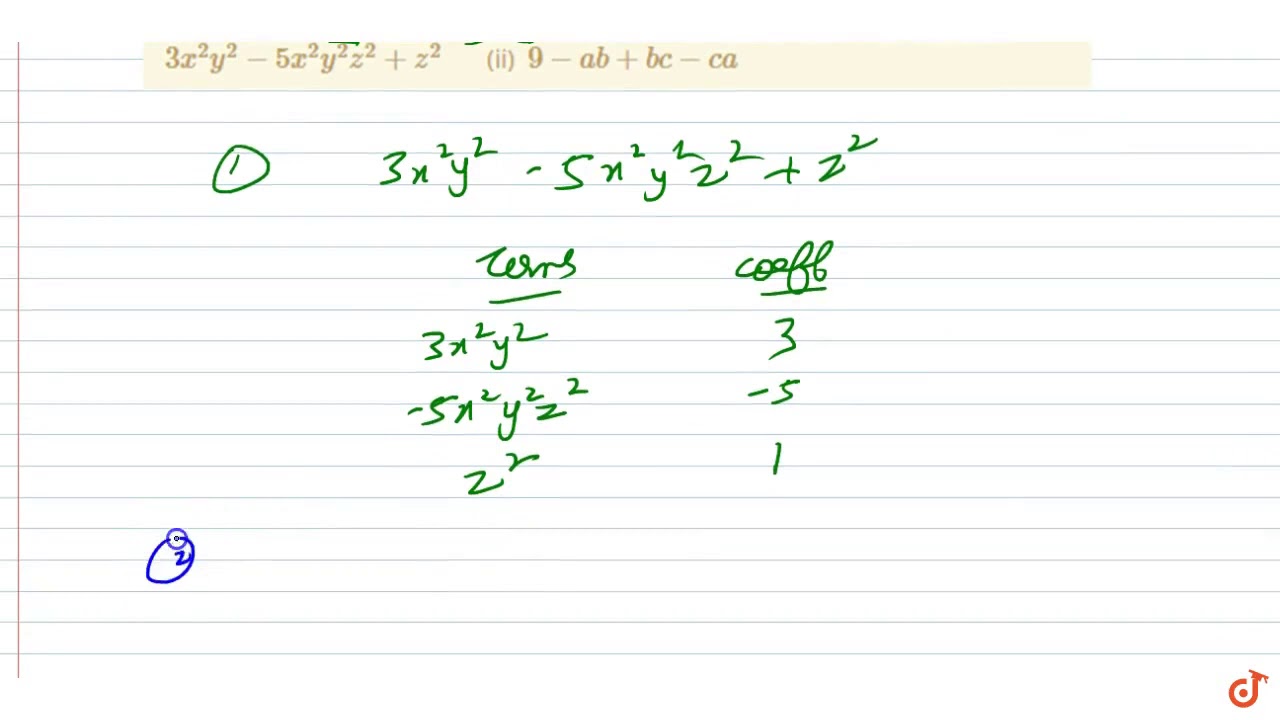 3x²y² − 5x²y²z² + z² (ii) 9 − ab + bc − ca
① 3x²y² - 5x²y²z² + z²
Terms coeff
3x²y² 3
-5x²y²z² -5
z² 1
②